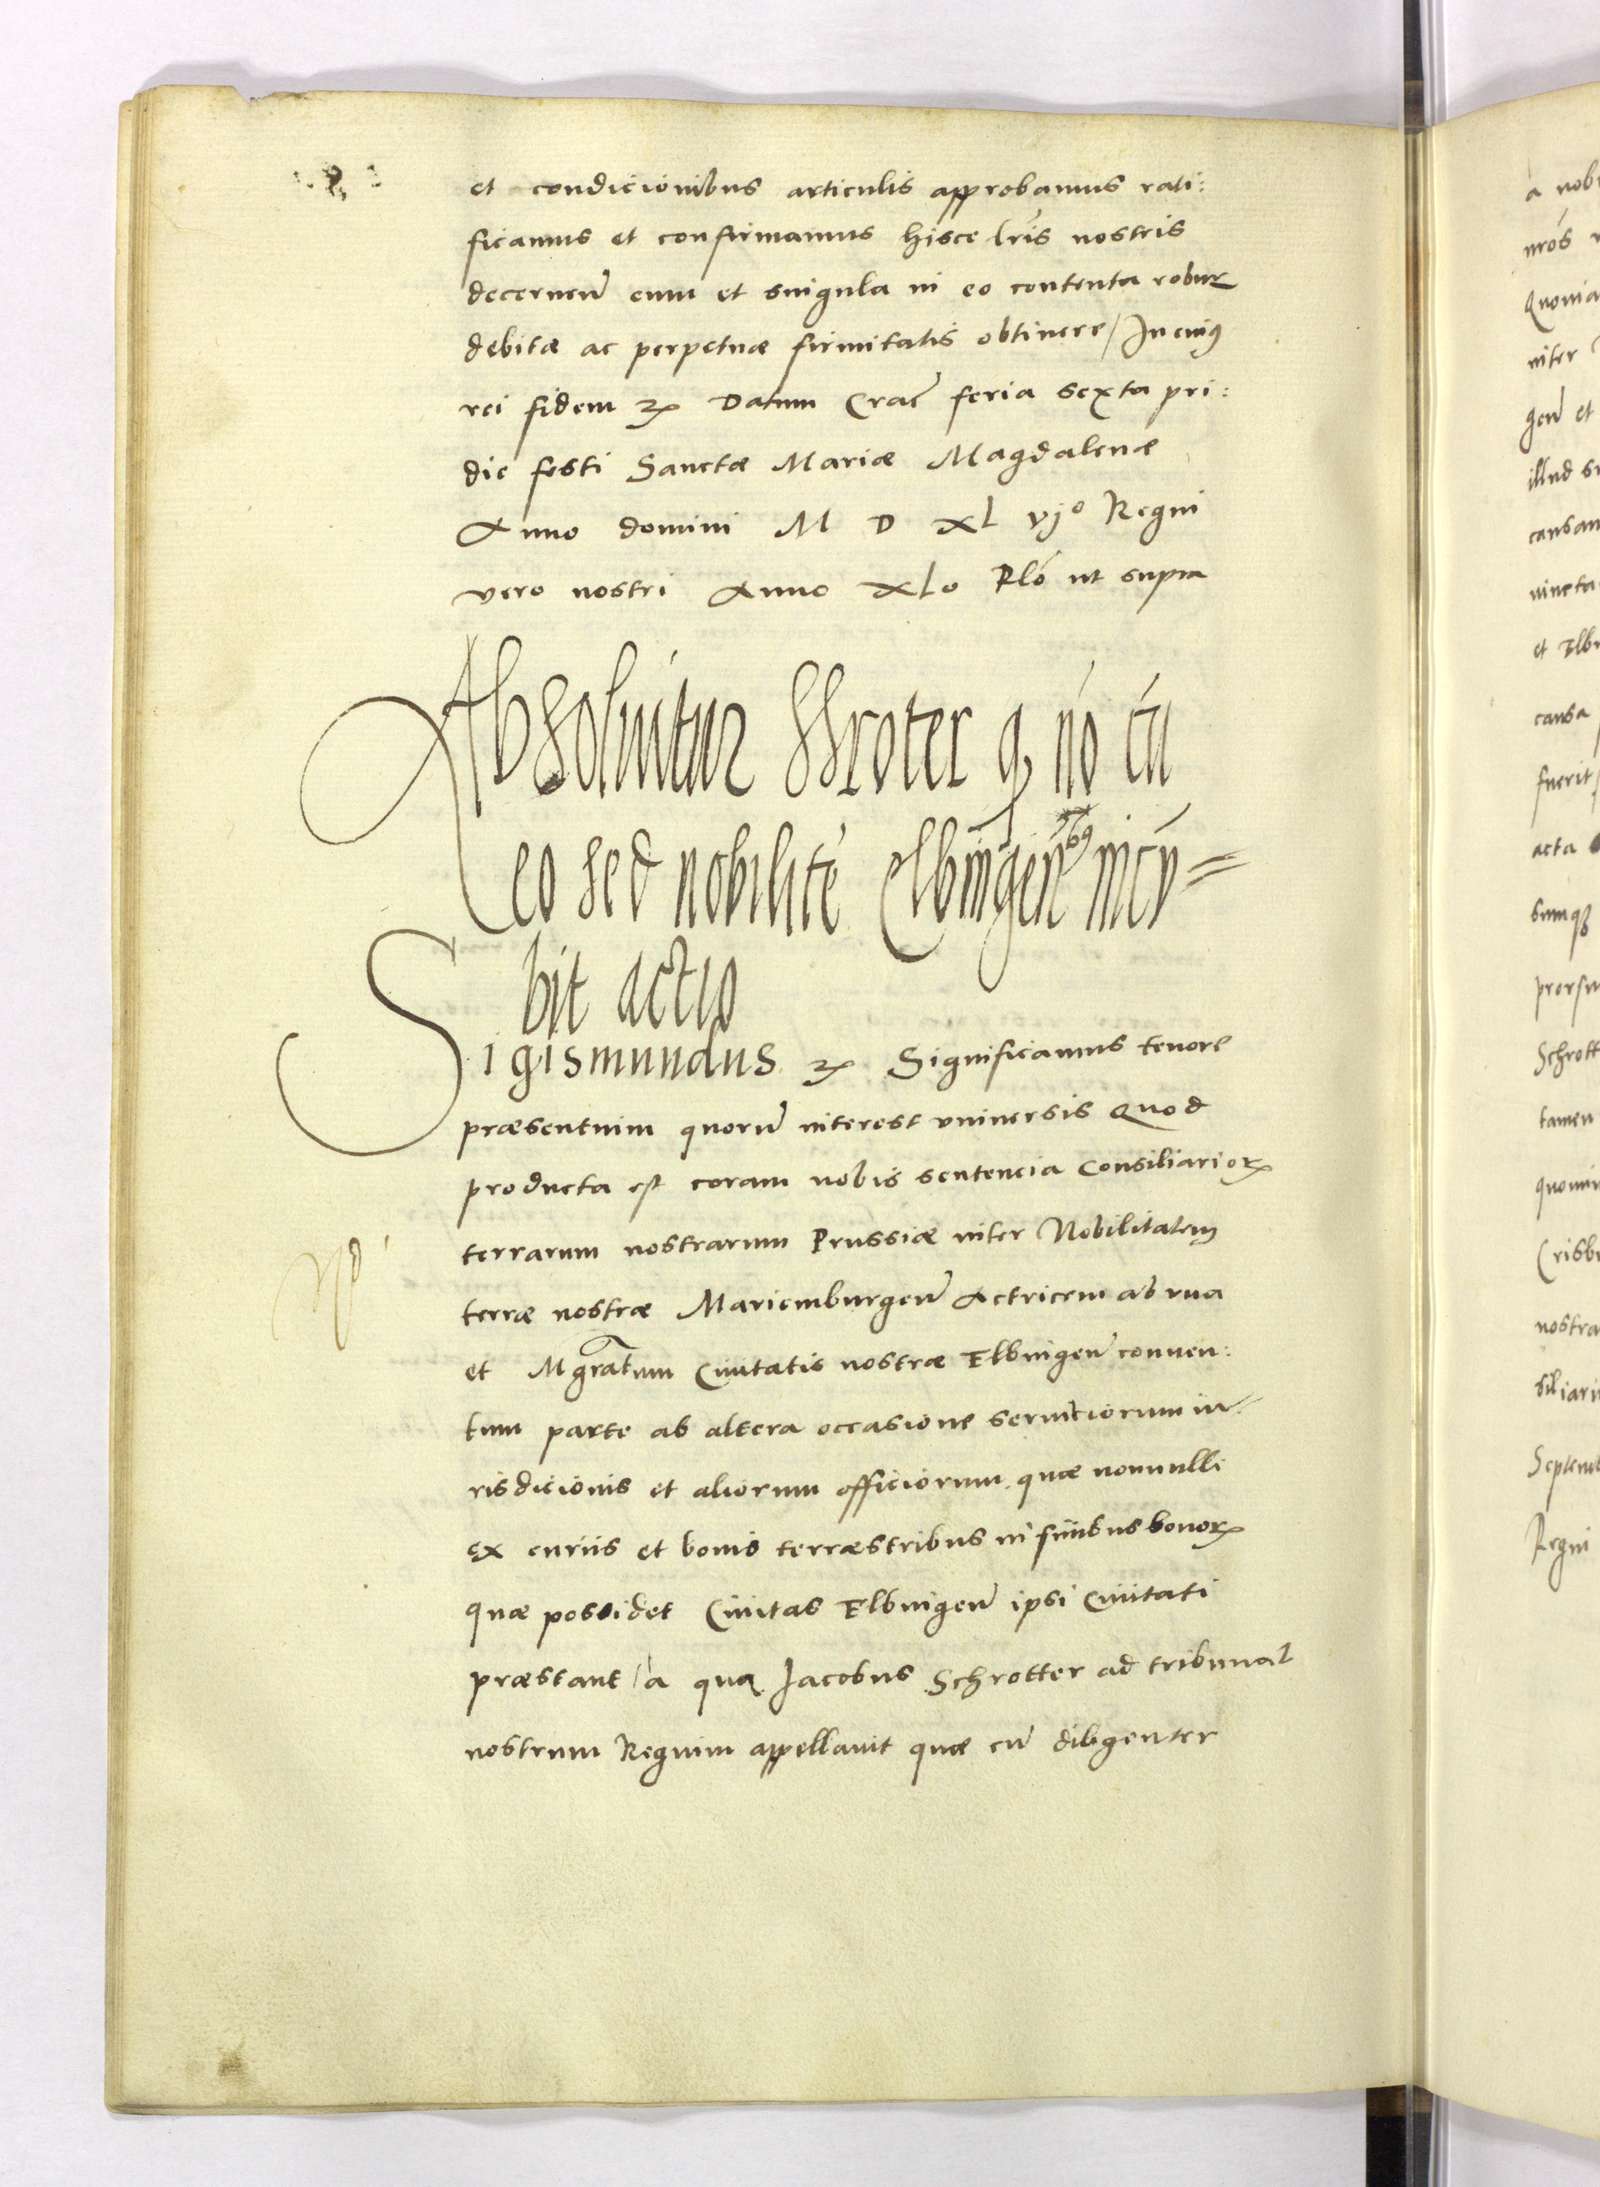 et condicionibus articulis approbamus rati:
ficamus et confirmamus hisce lr̃is nostris
decernen̄ eum et singula in eo contenta robur
debitæ ac perpetuæ firmitatis obtinere / In cuiꝰ
rei fidem ⁊c̃ Datum Crac̃ feria sexta pri:
die festi Sanctæ Mariæ Magdalenæ
Anno domini M D XL vjº Regni
vero nostri Anno XLo Rlõ ut supra
Absoluitur Shroter q nõ cũ
eo sed nobilitẽ Elbingeñbꝰ incũ=
bit actio
Sigismundus ⁊c̃ Significamus tenore
præsentium quorũ interest vniuersis Quod
producta est coram nobis sentencia Consiliarioꝝ
terrarum nostrarum Prussiæ inter Nobilitatem
terræ nostræ Mariemburgeñ Actricem ab vna
et Mgratum Ciuitatis nostræ Elbingeñ conuen:
tum parte ab altera occasione seruiciorum iu-
risdicionis et aliorum officiorum quæ nonnulli
ex curiis et bonis terræstribus in finibus bonoꝝ
quæ possidet Ciuitas Elbingeñ ipsi Ciuitati
præstant / a qua Jacobus Schrotter ad tribunal
nostrum Regium appellauit quæ cũ diligenter
a nob
nrõs
Quonia
inter
geñ et
illud
causam
et Elb
causa
fuerit
acta
sumqꝫ
Schrott
tamen
Crisb
nostra
siliari
Septem
Regni